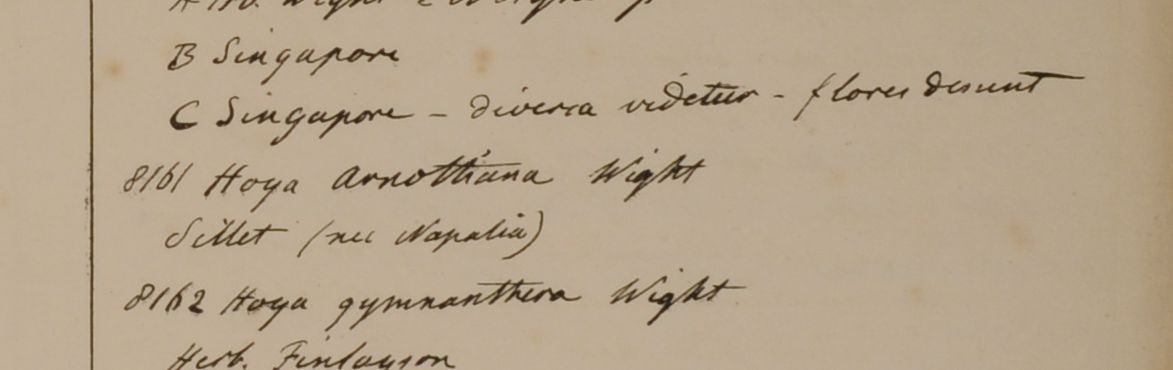 Herb. Wight
B Singapore
C Singapore – diversa videtur – flores desunt
8161 Hoya Arnottiana Wight
Sillet (nec Napalia)
8162 Hoya gymnanthera Wight
Herb. Finlayson